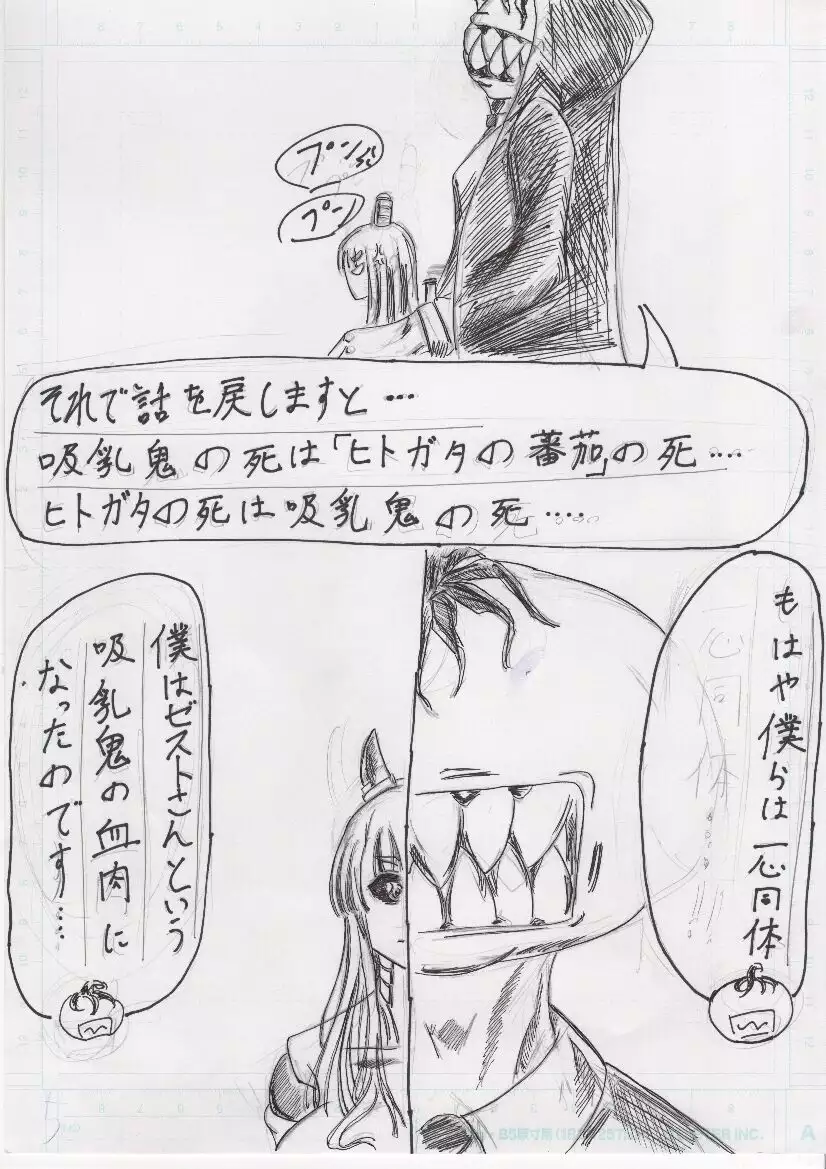 プンプン
プン
それで話を戻しますと…
吸乳鬼の死は「ヒトガタの蕃茄」の死….
ヒトガタの死は吸乳鬼の死….
もはや僕らは一心同体
僕はゼストさんという
吸乳鬼の血肉に
なったのです….
A